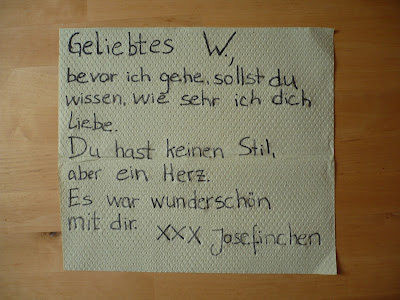 Geliebtes W.,
bevor ich gehe, sollst du
wissen, wie sehr ich dich
Liebe.
Du hast keinen Stil,
aber ein Herz.
Es war wunderschön
mit dir.
XXX Josefinchen